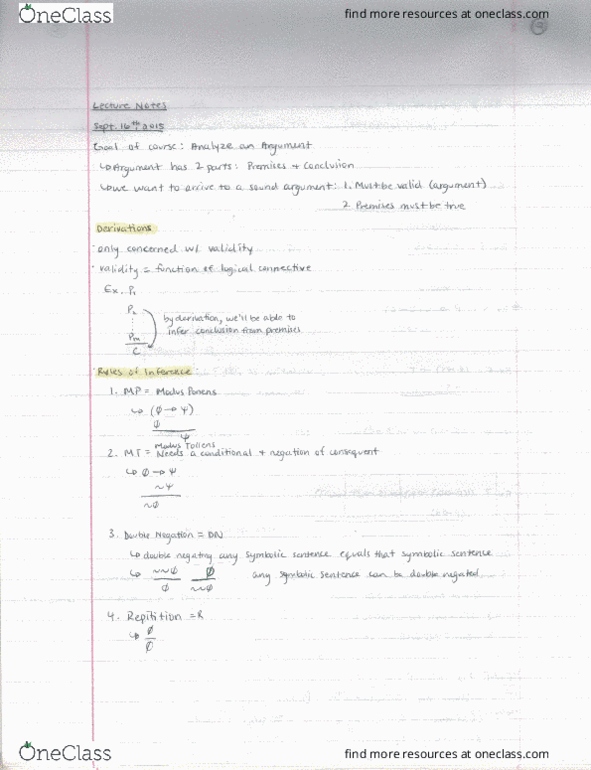 OneClass
find more resources at oneclass.com
Lecture Notes
Sept. 16th, 2015
Goal of course: Analyze an Argument
↳ Argument has 2 parts: Premises + Conclusion
↳ we want to arrive to a sound argument: 1. Must be valid (argument)
2. Premises must be true
Derivations
· only concerned w/ validity
· validity = function of logical connective
Ex. P₁
P₂
⋮
Pm
C
by derivation, we'll be able to
infer conclusion from premises
· Rules of Inference:
1. MP = Modus Ponens
↳ (ϕ → ψ)
ϕ
ψ
Modus Tollens
2. MT = Needs a conditional + negation of consequent
↳ ϕ → ψ
~ψ
~ϕ
3. Double Negation = DN
↳ double negating any symbolic sentence equals that symbolic sentence
↳ ~~ϕ ϕ any symbolic sentence can be double negated
ϕ ~~ϕ
4. Repitition = R
↳ ϕ
ϕ
OneClass
find more resources at oneclass.com